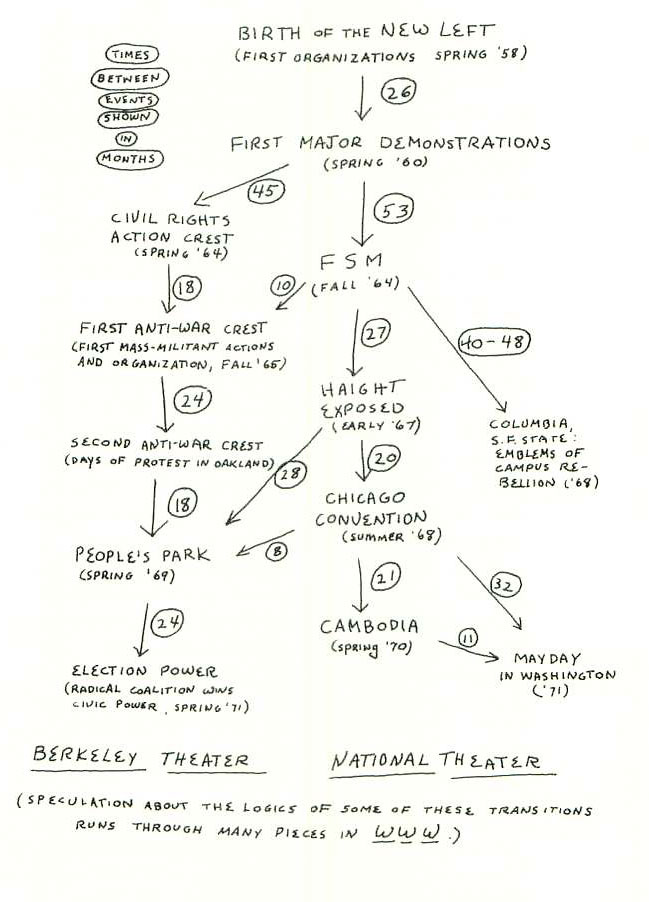 BIRTH OF THE NEW LEFT
(FIRST ORGANIZATIONS SPRING '58)
TIMES
BETWEEN
EVENTS
SHOWN
IN
MONTHS
26
FIRST MAJOR DEMONSTRATIONS
(SPRING '60)
45
53
CIVIL RIGHTS
ACTION CREST
(SPRING '64)
FSM
(FALL '64)
18
10
FIRST ANTI-WAR CREST
(FIRST MASS-MILITANT ACTIONS
AND ORGANIZATION, FALL '65)
27
40-48
24
HAIGHT
EXPOSED
(EARLY '67)
COLUMBIA,
S.F. STATE:
EMBLEMS OF
CAMPUS RE-
BELLION ('68)
SECOND ANTI-WAR CREST
(DAYS OF PROTEST IN OAKLAND)
20
28
18
CHICAGO
CONVENTION
(SUMMER '68)
PEOPLE'S PARK
(SPRING '69)
8
21
32
24
CAMBODIA
(SPRING '70)
11
MAYDAY
IN WASHINGTON
('71)
ELECTION POWER
(RADICAL COALITION WINS
CIVIC POWER, SPRING '71)
BERKELEY THEATER
NATIONAL THEATER
(SPECULATION ABOUT THE LOGICS OF SOME OF THESE TRANSITIONS
RUNS THROUGH MANY PIECES IN WWW.)